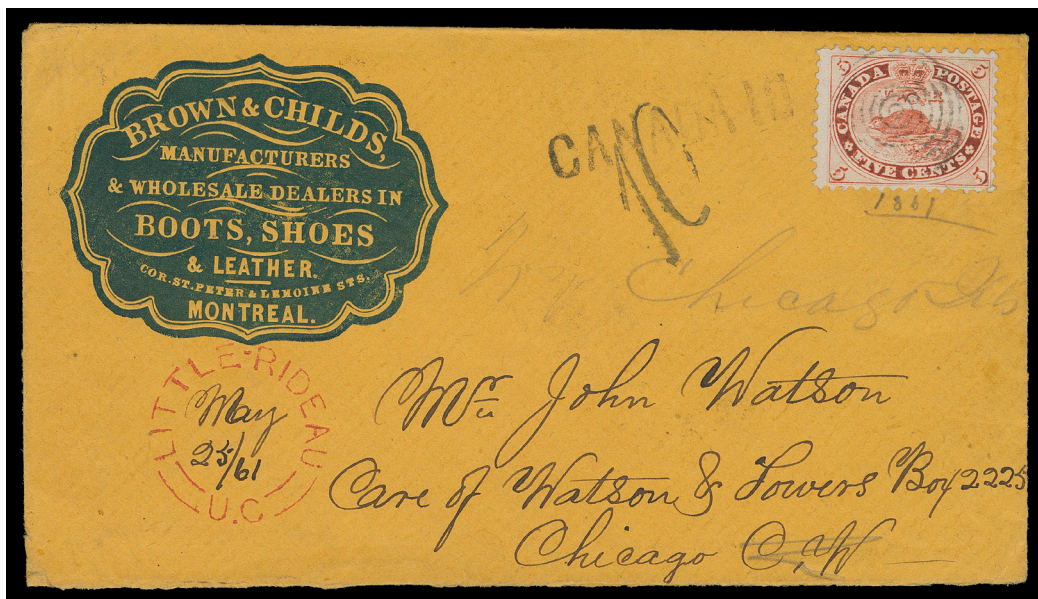 BROWN & CHILDS,
MANUFACTURERS
& WHOLESALE DEALERS IN
BOOTS, SHOES
& LEATHER.
COR. ST. PETER & LEMOINE STS,
MONTREAL.
CANADA
10
5 5
CANADA POSTAGE
FIVE CENTS
5 5
1861
Chicago Ills
LITTLE-RIDEAU
May
25/61
U.C
Mr John Watson
Care of Watson & Towers Box 2225
Chicago C,W